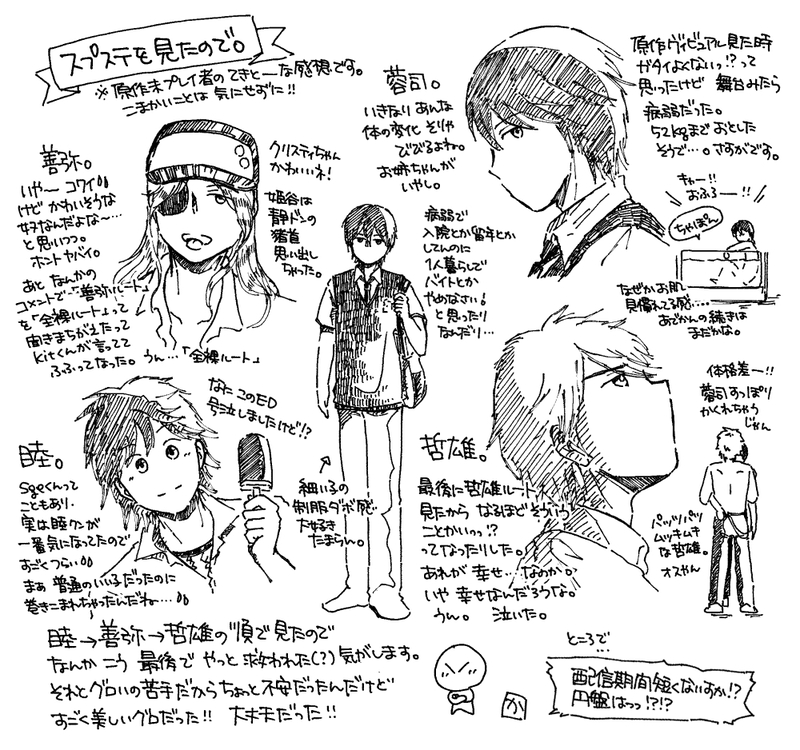 スプステを見たので。
※原作未プレイ者のてきとーな感想です。
こまかいことは気にせずに!!
善弥。
いや〜 コワイ
けど かわいそうな
女子なんだよな〜…
と思いつつ。
ホントヤバイ。
あと なんかの
コメントで「善弥ルート」
を「全裸ルート」って
聞きまちがえたって
kitくんが言ってて
ふふってなった。うん…「全裸ルート」
クリスティちゃん
かわいいネ!
姫谷は
静ドンの
猪首
思い出し
ちゃった。
蓉司。
いきなり あんな
体の変化 そりゃ
びびるよね。
お姉ちゃんが
いやし。
原作ヴィジュアル見た時
ガタイよくないっ!?って
思ったけど 舞台みたら
病弱だった。
52kgまでおとした
そうで…。さすがです。
病弱で
入院とか留年とか
してんのに
1人暮らしで
バイトとか
やめなさい!
と思ったり
なんだり…
キャー!!
おふろー!!
ちゃぽん
なぜかお肌
見慣れてる感…。
あどかんの続きは
まだかな。
細いみの
制服ダボ感…
大好き
たまらん。
睦。
sgeくんって
こともあり、
実は睦クンが
一番気になってたので
すごくつらい
まぁ 普通のいい子だったのに
巻きこまれちゃったんだね…
なに このED
号泣しましたけど!?
哲雄。
最後に哲雄ルート
見たから なるほどそういう
ことかいっ!?
ってなったりした。
あれが 幸せ…なのか。
いや 幸せなんだろうな。
うん。 泣いた。
体格差ー!!
蓉司すっぽり
かくれちゃう
じゃん
パッツパツ
ムッキムキ
な哲雄。
オスやん
睦→善弥→哲雄の順で見たので
なんか こう 最後で やっと 救われた(?)気がします。
それとグロいの苦手だからちょっと不安だったんだけど
すごく美しいグロだった!! 大丈夫だった!!
か
ところで
…
配信期間短くないすか!?
円盤はっっ!?!?